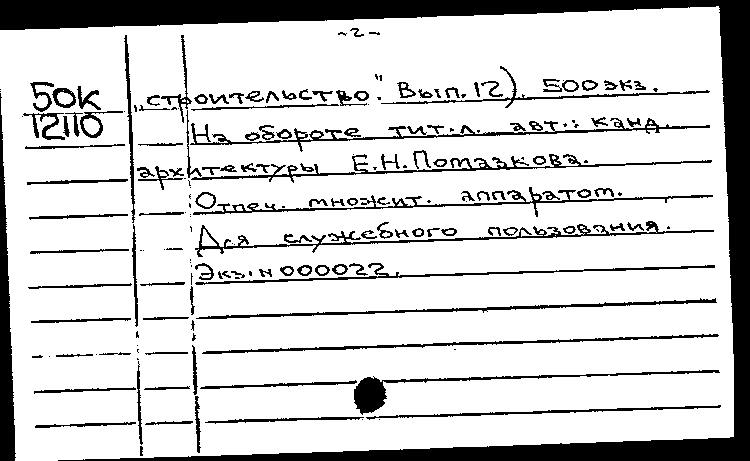 ~2~
50К „строительство". Вып. 12). 500 экз.
12110 На обороте тит. л. авт.: канд.
архитектуры Е.Н. Помазкова.
Отпеч. множит. аппаратом.
Для служебного пользования.
Экз. N 000022.